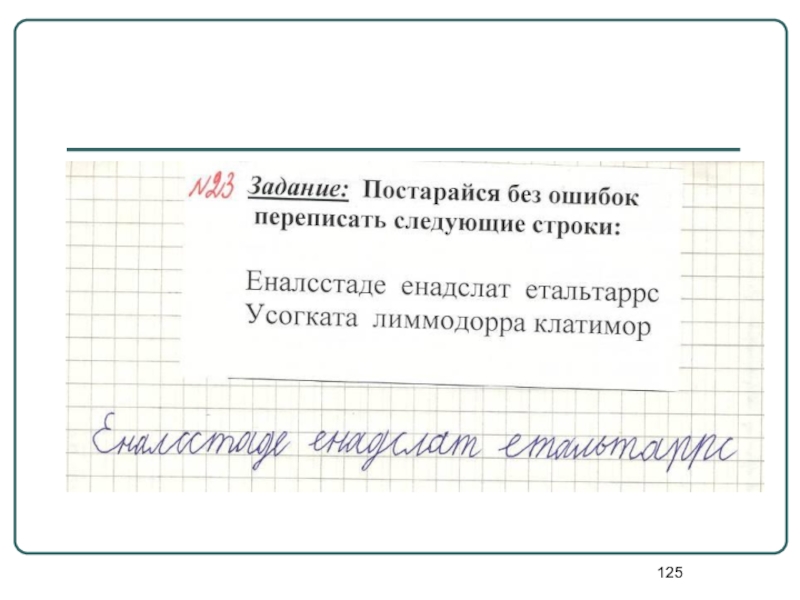 №23 Задание: Постарайся без ошибок
переписать следующие строки:
Еналсстаде енадслат етальтаррс
Усогката лиммодорра клатимор
Еналсстаде енадслат етальтаррс
125